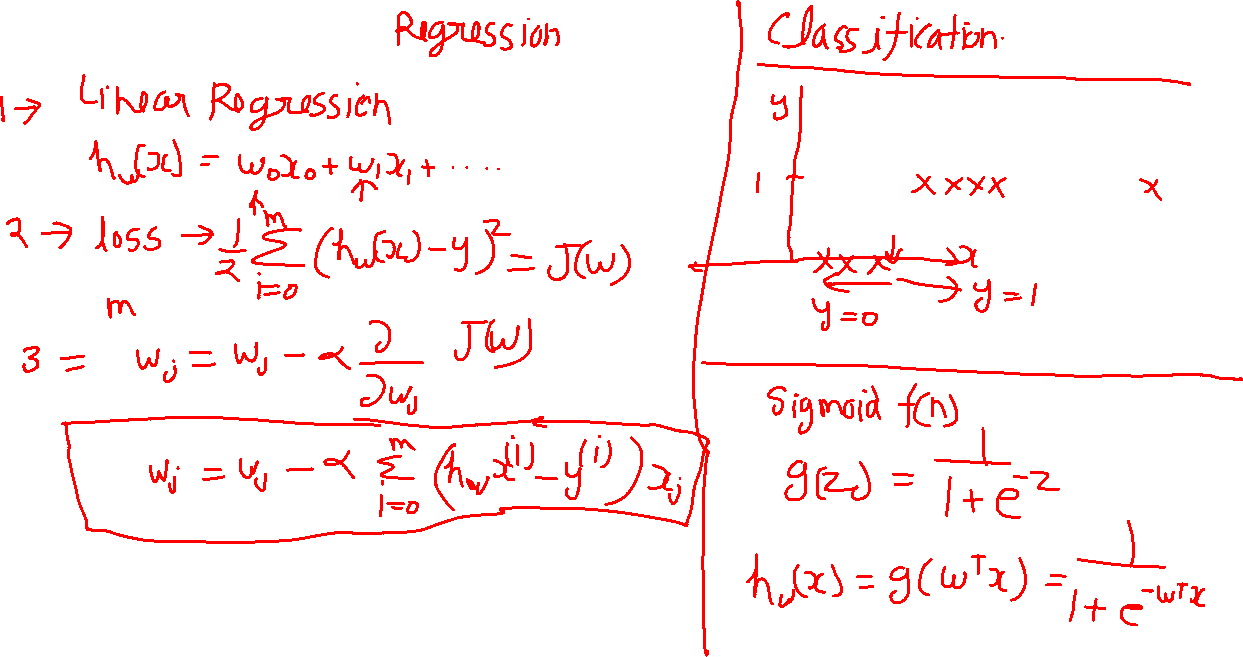 Regression
1→ Linear Regression
h_w(x) = w₀x₀ + w₁x₁ + ....
2 → loss → 1/2 Σ_{i=0}^{m} (h_w(x) - y)² = J(w)
m
3 = w_j = w_j - α ∂/∂w_j J(w)
w_j = w_j - α Σ_{i=0}^{m} (h_w x^{(i)} - y^{(i)}) x_j
Classification.
y
1 x x x x x
x x x x
y=0 y=1
Sigmoid f(n)
g(z) = 1/(1+e^{-z})
h_w(x) = g(w^T x) = 1/(1+e^{-w^T x})